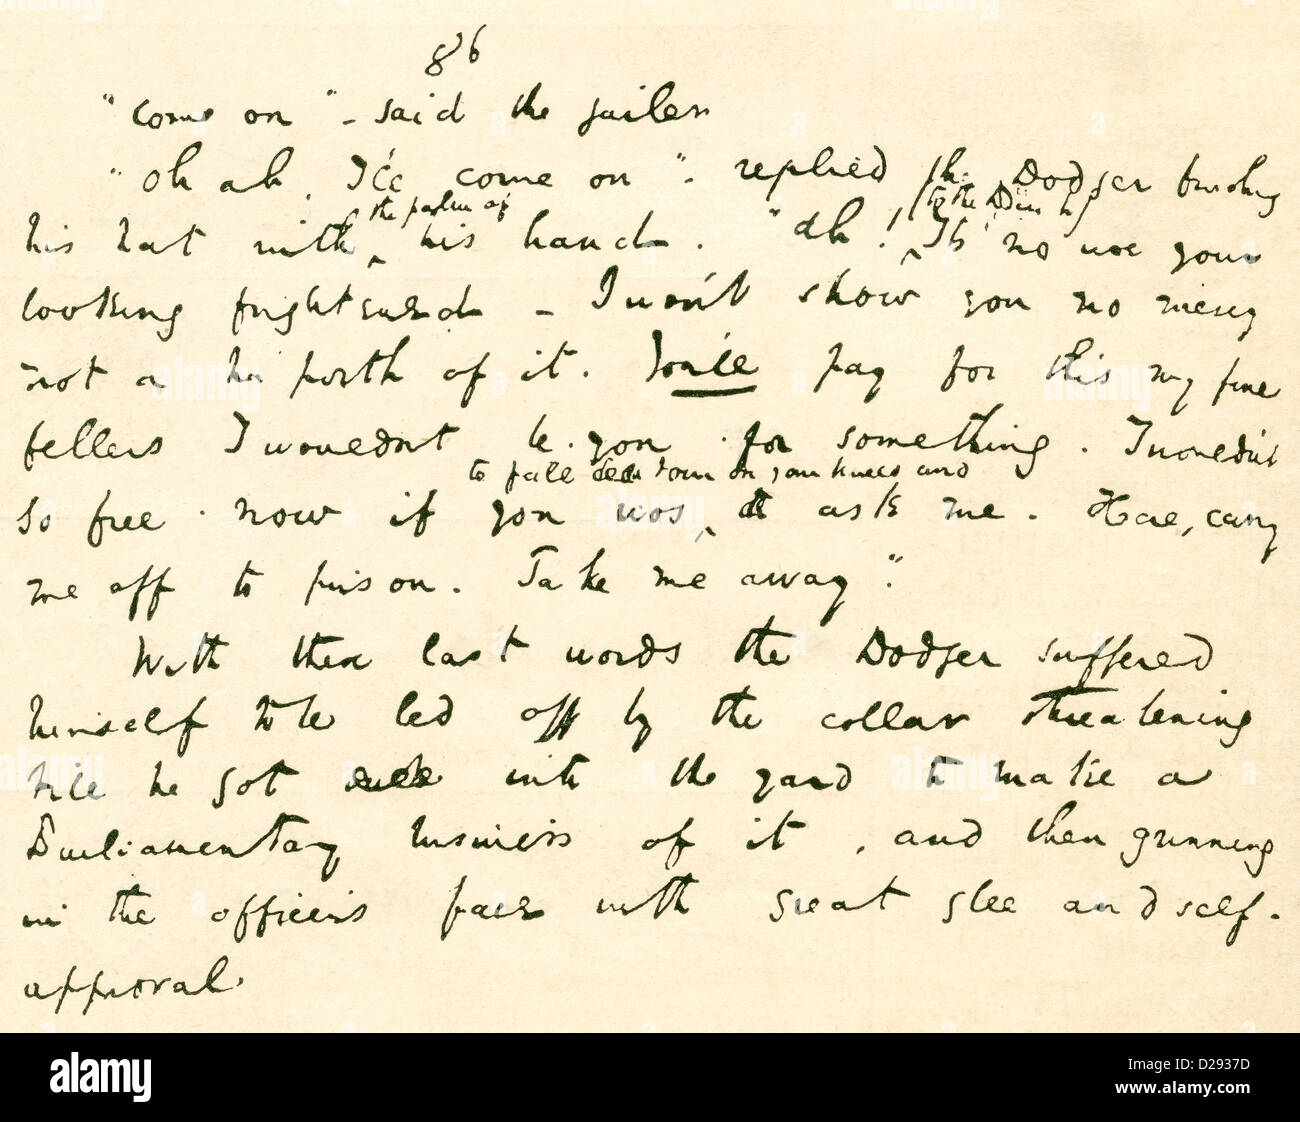 86
"Come on" - said the jailer
"Oh ah, I'll come on" - replied the Dodger brushing
his hat with the palm of his hand. "Ah! (to the Bench) It's no use your
looking frightened - I won't show you no mercy
not a ha'porth of it. You'll pay for this my fine
fellers I wouldn't be you for something. I wouldn't
go free now if you was to fall down on your knees and ask me. Here, carry
me off to prison. Take me away".
With these last words the Dodger suffered
himself to be led off by the collar threatening
till he got into the yard to make a
Parliamentary business of it, and then grinning
in the officer's face with great glee and self-
approval.
alamy
Image ID: D2937D
www.alamy.com